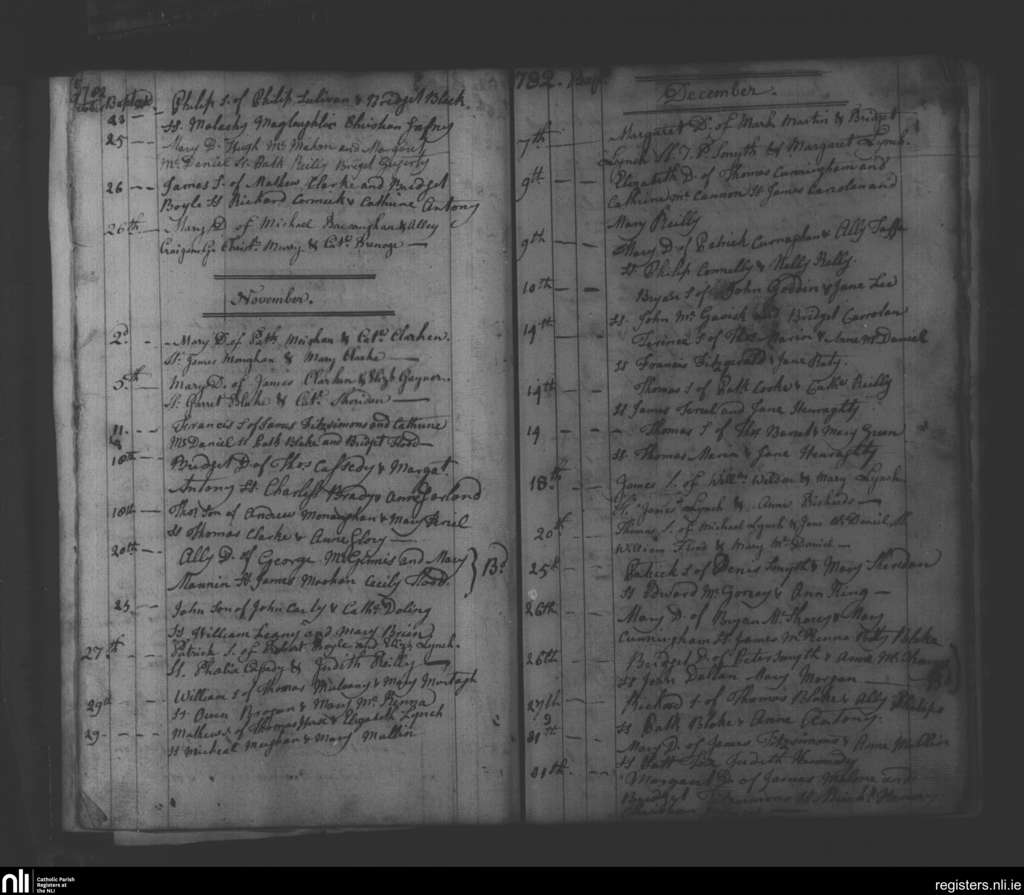 1782
Baptized
23 -- Philip S. of Philip Sulivan & Bridget Black
St. Malachy Maglaughlin Christian Gafny
25 -- Mary D. Hugh Mc Mahon and Margaret
McDaniel St. Patk Reilly Briget
26 -- James S. of Mathew Clarke and Bridget
Boyle St Richard Cormick & Cathrine Antony
26th -- Mary D of Michael & Alley
Christr. Murry & Cat.
November.
2d -- Mary D. of Path. Meighan & Cat. Clarken.
St. James Monaghan & Mary Clarke
5th -- Mary D. of James Clarken & Eliz. Gaynor.
St. Garret Blake & Cat. Sheridan
11 -- Francis S of James Fitzsimons and Cathrine
McDaniel St Patk Blake and Bridget Flood
18th -- Bridget D of Thos Cassedy & Margat
Antony St Charles Brady & Ann Garland
18th -- Thos Son of Andrew Monaughan & Mary
St Thomas Clarke & Anne Glory
20th -- Ally D. of George McGinnis and Mary
Mannin St James Meehan Cecily Flood. } Bd
25 -- John Son of John & Cath. Doling
St. William and Mary Brien
27th -- Patrick S. of Robert Boyle and Eliz. Lynch.
St. Phalia Casady & Judith Reilly
29th -- William S of Thomas Mulvany & Mary Murtagh
St Owen Brogan & Mary Mc Kenna
29 -- Mathew S. of Thomas & Elizabeth Lynch
St Micheal Meighan & Mary Mallin
1782. Bap.
December.
7th -- Margaret D. of Mark Martin & Bridget
Lynch St. T. P. Smyth & Margaret Lynch.
9th -- Elizabeth D. of Thomas Cunningham and
Cathrine Mc Cannon St James Carrolan and
Mary Reilly
9th -- Mary D. of Patrick Curnaghan & Ally Taffe
St Philip Connelly & Nelly Kelly.
10th -- Bryan S. of John Goddin & Jane Lee
St. John Mc Gavisk and Bridget Carrolan
14th -- Terince S of Thos Marin & Anne Mc Daniel
St Francis Fitzgerald & Jane
14th -- Thomas S of Patk Cooke & Cath Reilly
St James and Jane Henraghty
19 -- Thomas S of Thos Barret & Mary Green
St. Thomas Marin & Jane Henraghty
18th -- James S. of Willm Wildon & Mary Lynch
St. James Lynch & Anne Richards
20th -- Thomas S. of Michael Lynch & Jane McDaniel St
William Flood & Mary McDaniel
25th -- Patrick S of Denis Smyth & Mary Sheridan
St Edward Mc Gorray & Ann King
26th -- Mary D. of Bryan Mc & Mary
Cunningham St James McKenna Betty Blake
26th -- Bridget D. of Peter Smyth & Anne Mc
St John Dollan Mary Morgan
27th -- Richard S of Thomas Blake & Ally Phillips
St Patk Blake & Anne Antony.
31st -- Mary D. of James Fitzsimons & Anne Mullin
St Matt Judith Kennedy
31th. -- Margaret D. of James Malone and
Bridget Fitzsimons St
nli
Catholic Parish
Registers at
the NLI
registers.nli.ie